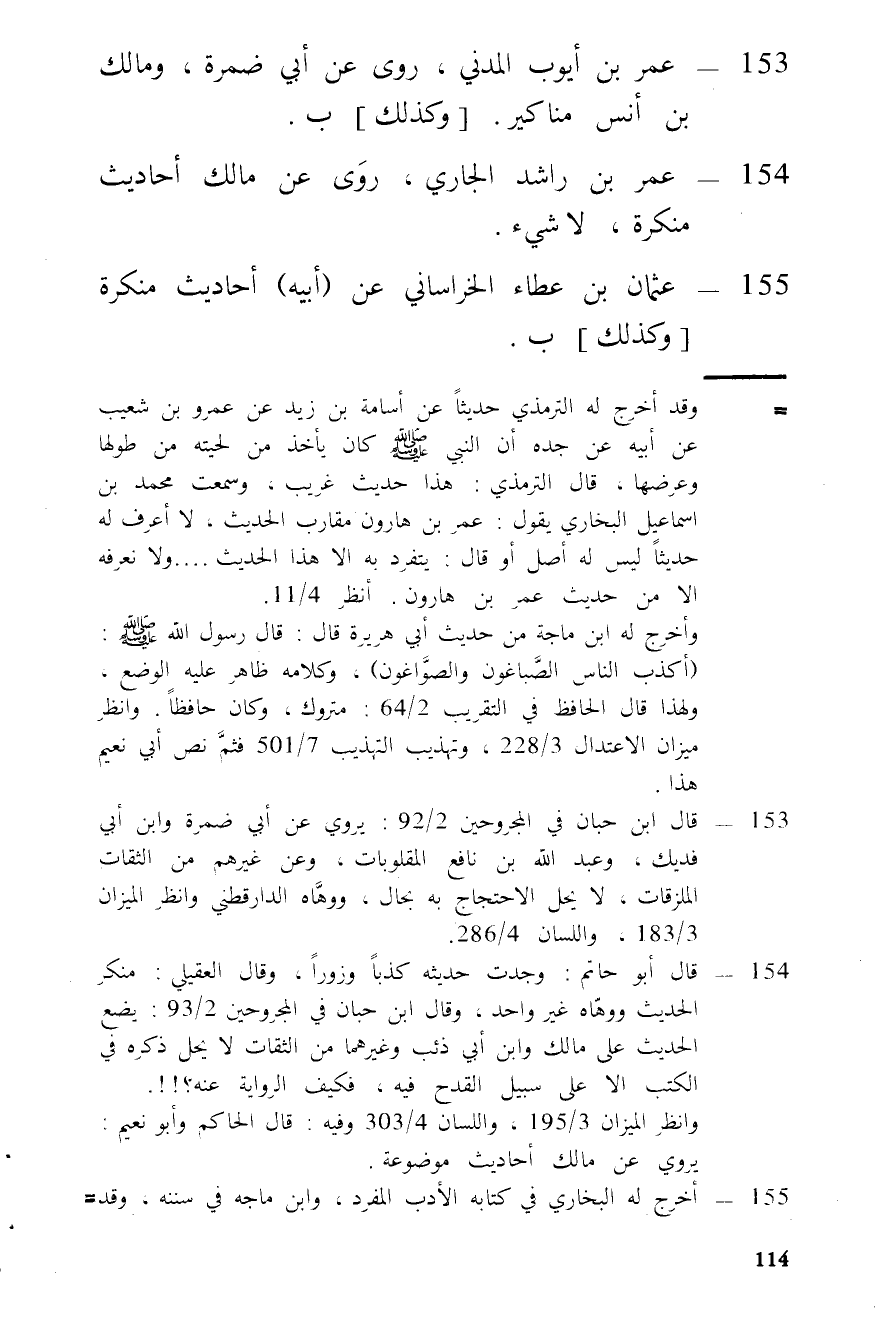 153 — عمر بن أيوب المدني ، روى عن أبي ضمرة ، ومالك
بن أنس مناكير . [ وكذلك ] ب .
154 — عمر بن راشد الجاري ، روَى عن مالك أحاديث
منكرة ، لا شيء .
155 — عثمان بن عطاء الخراساني عن (أبيه) أحاديث منكرة
[ وكذلك ] ب .
= وقد أخرج له الترمذي حديثاً عن أسامة بن زيد عن عمرو بن شعيب
عن أبيه عن جده أن النبي ﷺ كان يأخذ من لحيته من طولها
وعرضها ، قال الترمذي : هذا حديث غريب ، وسمعت محمد بن
اسماعيل البخاري يقول : عمر بن هارون مقارب الحديث ، لا أعرف له
حديثاً ليس له أصل أو قال : يتفرد به الا هذا الحديث ....ولا نعرفه
الا من حديث عمر بن هارون . أنظر 11/4.
وأخرج له ابن ماجة من حديث أبي هريرة قال : قال رسول الله ﷺ :
(أكذب الناس الصَّباغون والصوَّاغون) ، وكلامه ظاهر عليه الوضع ،
ولهذا قال الحافظ في التقريب 64/2 : متروك ، وكان حافظاً . وانظر
ميزان الاعتدال 228/3 ، وتهذيب التهذيب 501/7 فثمَّ نص أبي نعيم
هذا .
153 — قال ابن حبان في المجروحين 92/2 : يروي عن أبي ضمرة وابن أبي
فديك ، وعبد الله بن نافع المقلوبات ، وعن غيرهم من الثقات
الملزقات ، لا يحل الاحتجاج به بحال ، ووهَّاه الدارقطني وانظر الميزان
183/3 ، واللسان 286/4.
154 — قال أبو حاتم : وجدت حديثه كذباً وزوراً ، وقال العقيلي : منكر
الحديث ووهّاه غير واحد ، وقال ابن حبان في المجروحين 93/2 : يضع
الحديث على مالك وابن أبي ذئب وغيرهما من الثقات لا يحل ذكره في
الكتب الا على سبيل القدح فيه ، فكيف الرواية عنه؟!!.
وانظر الميزان 195/3 ، واللسان 303/4 وفيه : قال الحاكم وأبو نعيم :
يروي عن مالك أحاديث موضوعة .
155 — أخرج له البخاري في كتابه الأدب المفرد ، وابن ماجه في سننه ، وقد=
114